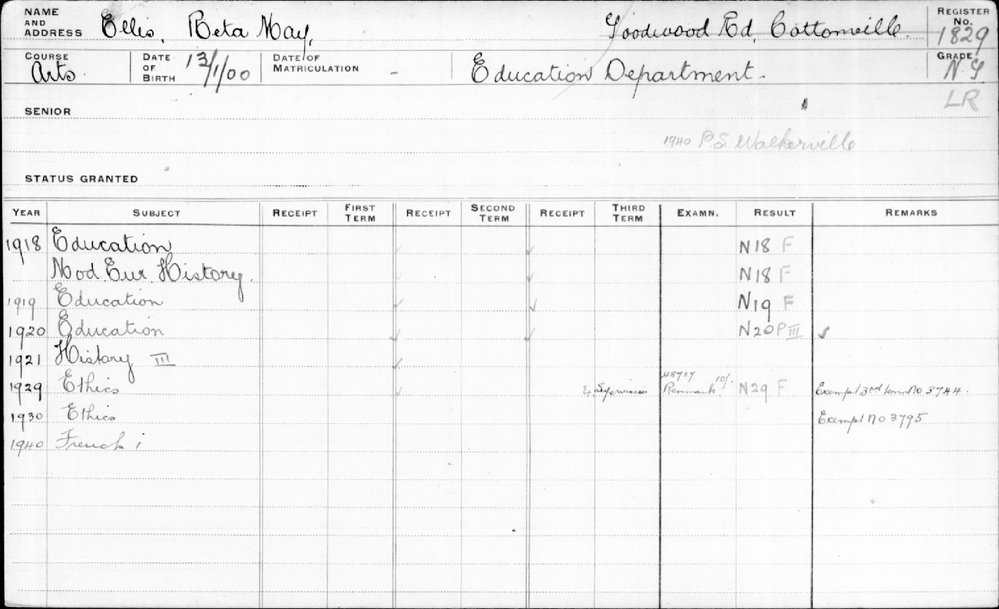 NAME AND ADDRESS Ellis, Reta May, Goodwood Rd, Cottonville. REGISTER No. 1829
COURSE Arts. DATE OF BIRTH 13/1/00 DATE OF MATRICULATION - Education Department. GRADE N.G
LR
SENIOR
1940 P.S Walkerville
STATUS GRANTED
YEAR SUBJECT RECEIPT FIRST TERM RECEIPT SECOND TERM RECEIPT THIRD TERM EXAMN. RESULT REMARKS
1918 Education ✓ ✓ N18 F
Mod. Eur. History. ✓ ✓ N18 F
1919 Education ✓ ✓ N19 F
1920 Education ✓ ✓ N20 P III ✓
1921 History III ✓
1929 Ethics ✓ Renmark 10/- N29 F Exempt 3rd term No 3744.
1930 Ethics Exempt No 3795
1940 French i